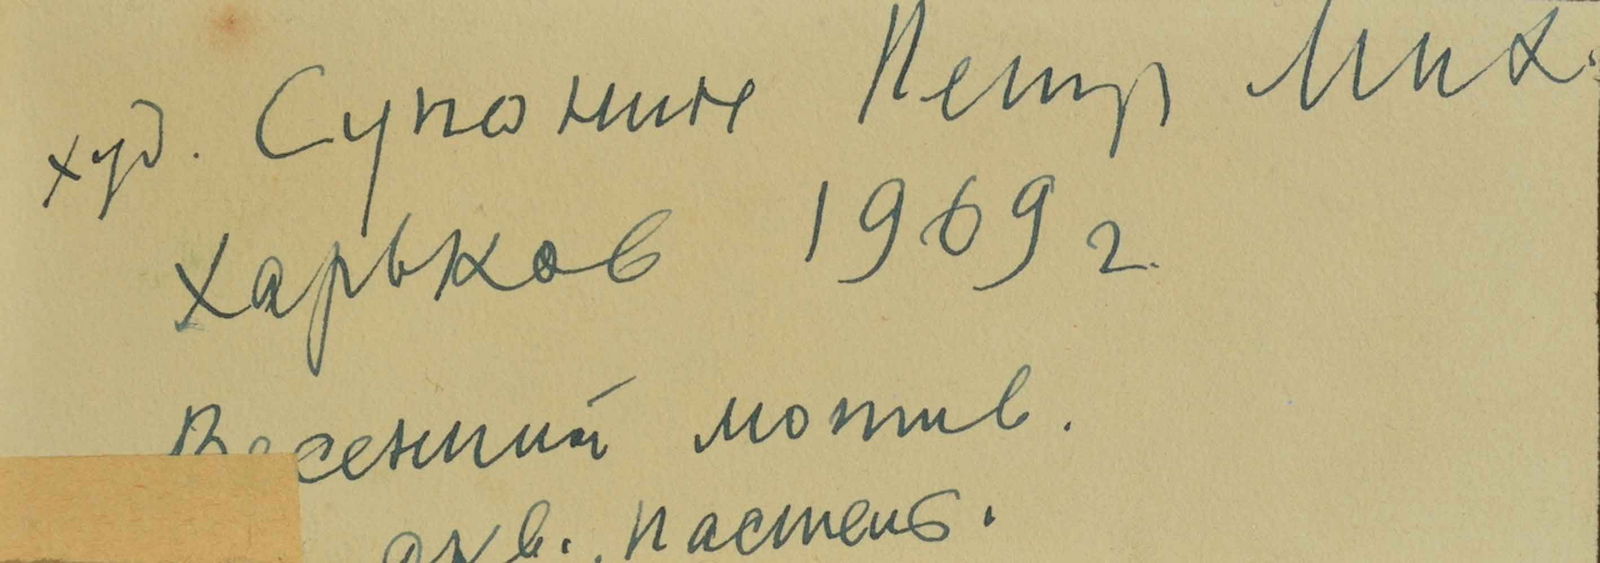 худ. Супонин Петр Мих.
Харьков 1969 г.
Весенний мотив.
акв. пастель.